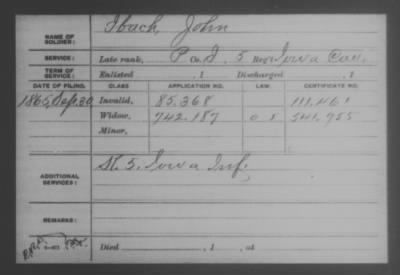 NAME OF SOLDIER: Ibach, John
SERVICE: Late rank, P Co. I, 5 Reg't Iowa Cav.
TERM OF SERVICE: Enlisted , 1 Discharged , 1
DATE OF FILING. CLASS APPLICATION NO. LAW. CERTIFICATE NO.
1865, Sep. 20 Invalid, 85.368 111.461
Widow, 742.187 541.955
Minor,
ADDITIONAL SERVICES: 5. Iowa Inf.
REMARKS:
Died , 1 , at